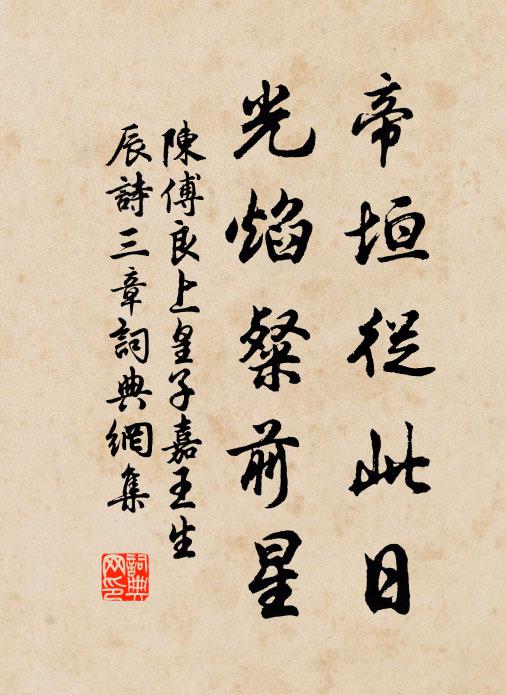 帝垣從此日
光焰粲前星
陳傅良上皇子嘉王生
辰詩三章詞典網集
詞典
网印